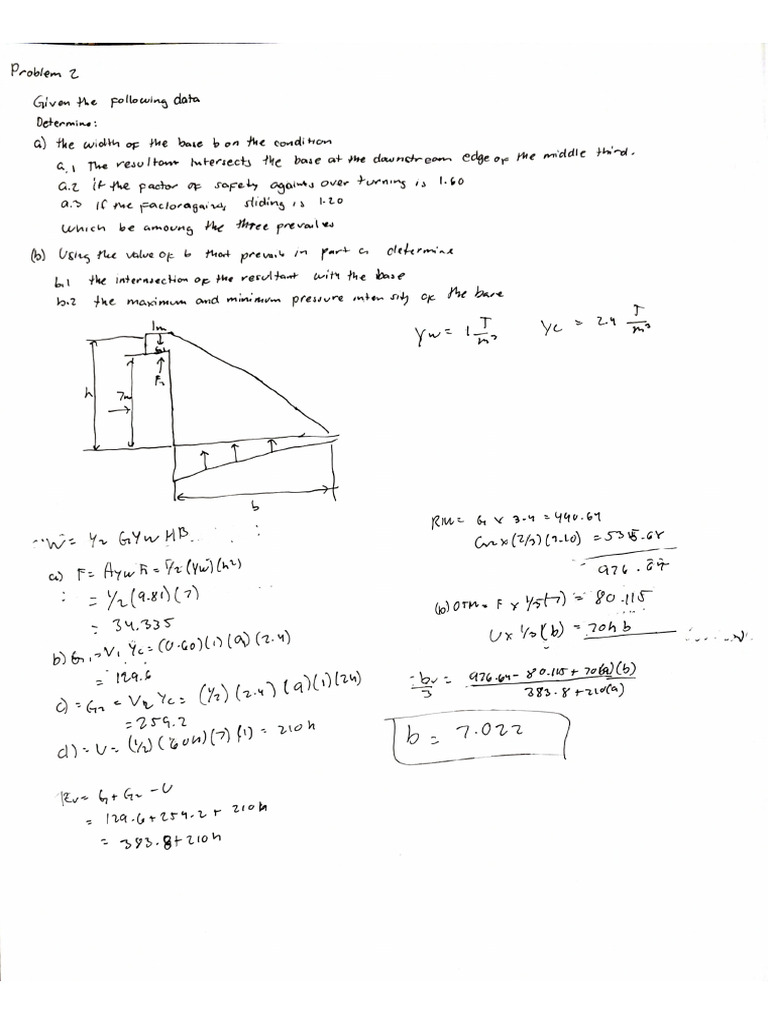 Problem 2
Given the following data
Determine:
a) the width of the base b on the condition
a.1 The resultant intersects the base at the downstream edge of the middle third.
a.2 if the factor of safety againts over turning is 1.60
a.3 if the factor against sliding is 1.20
which be amoung the three prevailes
(b) Using the value of b that prevails in part a determine
b.1 the internsection of the resultant with the base
b.2 the maximum and minimum pressure intensity of the base
γw = 1 T/m³ γc = 2.4 T/m³
1m
h
7m
b
W = 1/2 GγW HB
a) F = Aγw h = 1/2 (γw)(h²)
= 1/2 (9.81)(7)
= 34.335
b) G1 = V1 γc = (0.60)(1)(9)(2.4)
= 129.6
c) = G2 = V2 γc = (1/2)(2.4)(9)(1)(24)
= 259.2
d) = U = (1/2)(60h)(7)(1) = 210h
Rv = G1 + G2 - U
= 129.6 + 259.2 + 210h
= 383.8 + 210h
RM = G1 x 3.4 = 440.64
G2 x (2/3)(3.10) = 535.68
976.64
(b) OTM = F x 1/3(7) = 80.115
U x 1/3 (b) = 70h b
b/3 = 976.64 - 80.115 + 70(a)(b) / 383.8 + 210(a)
b = 7.022